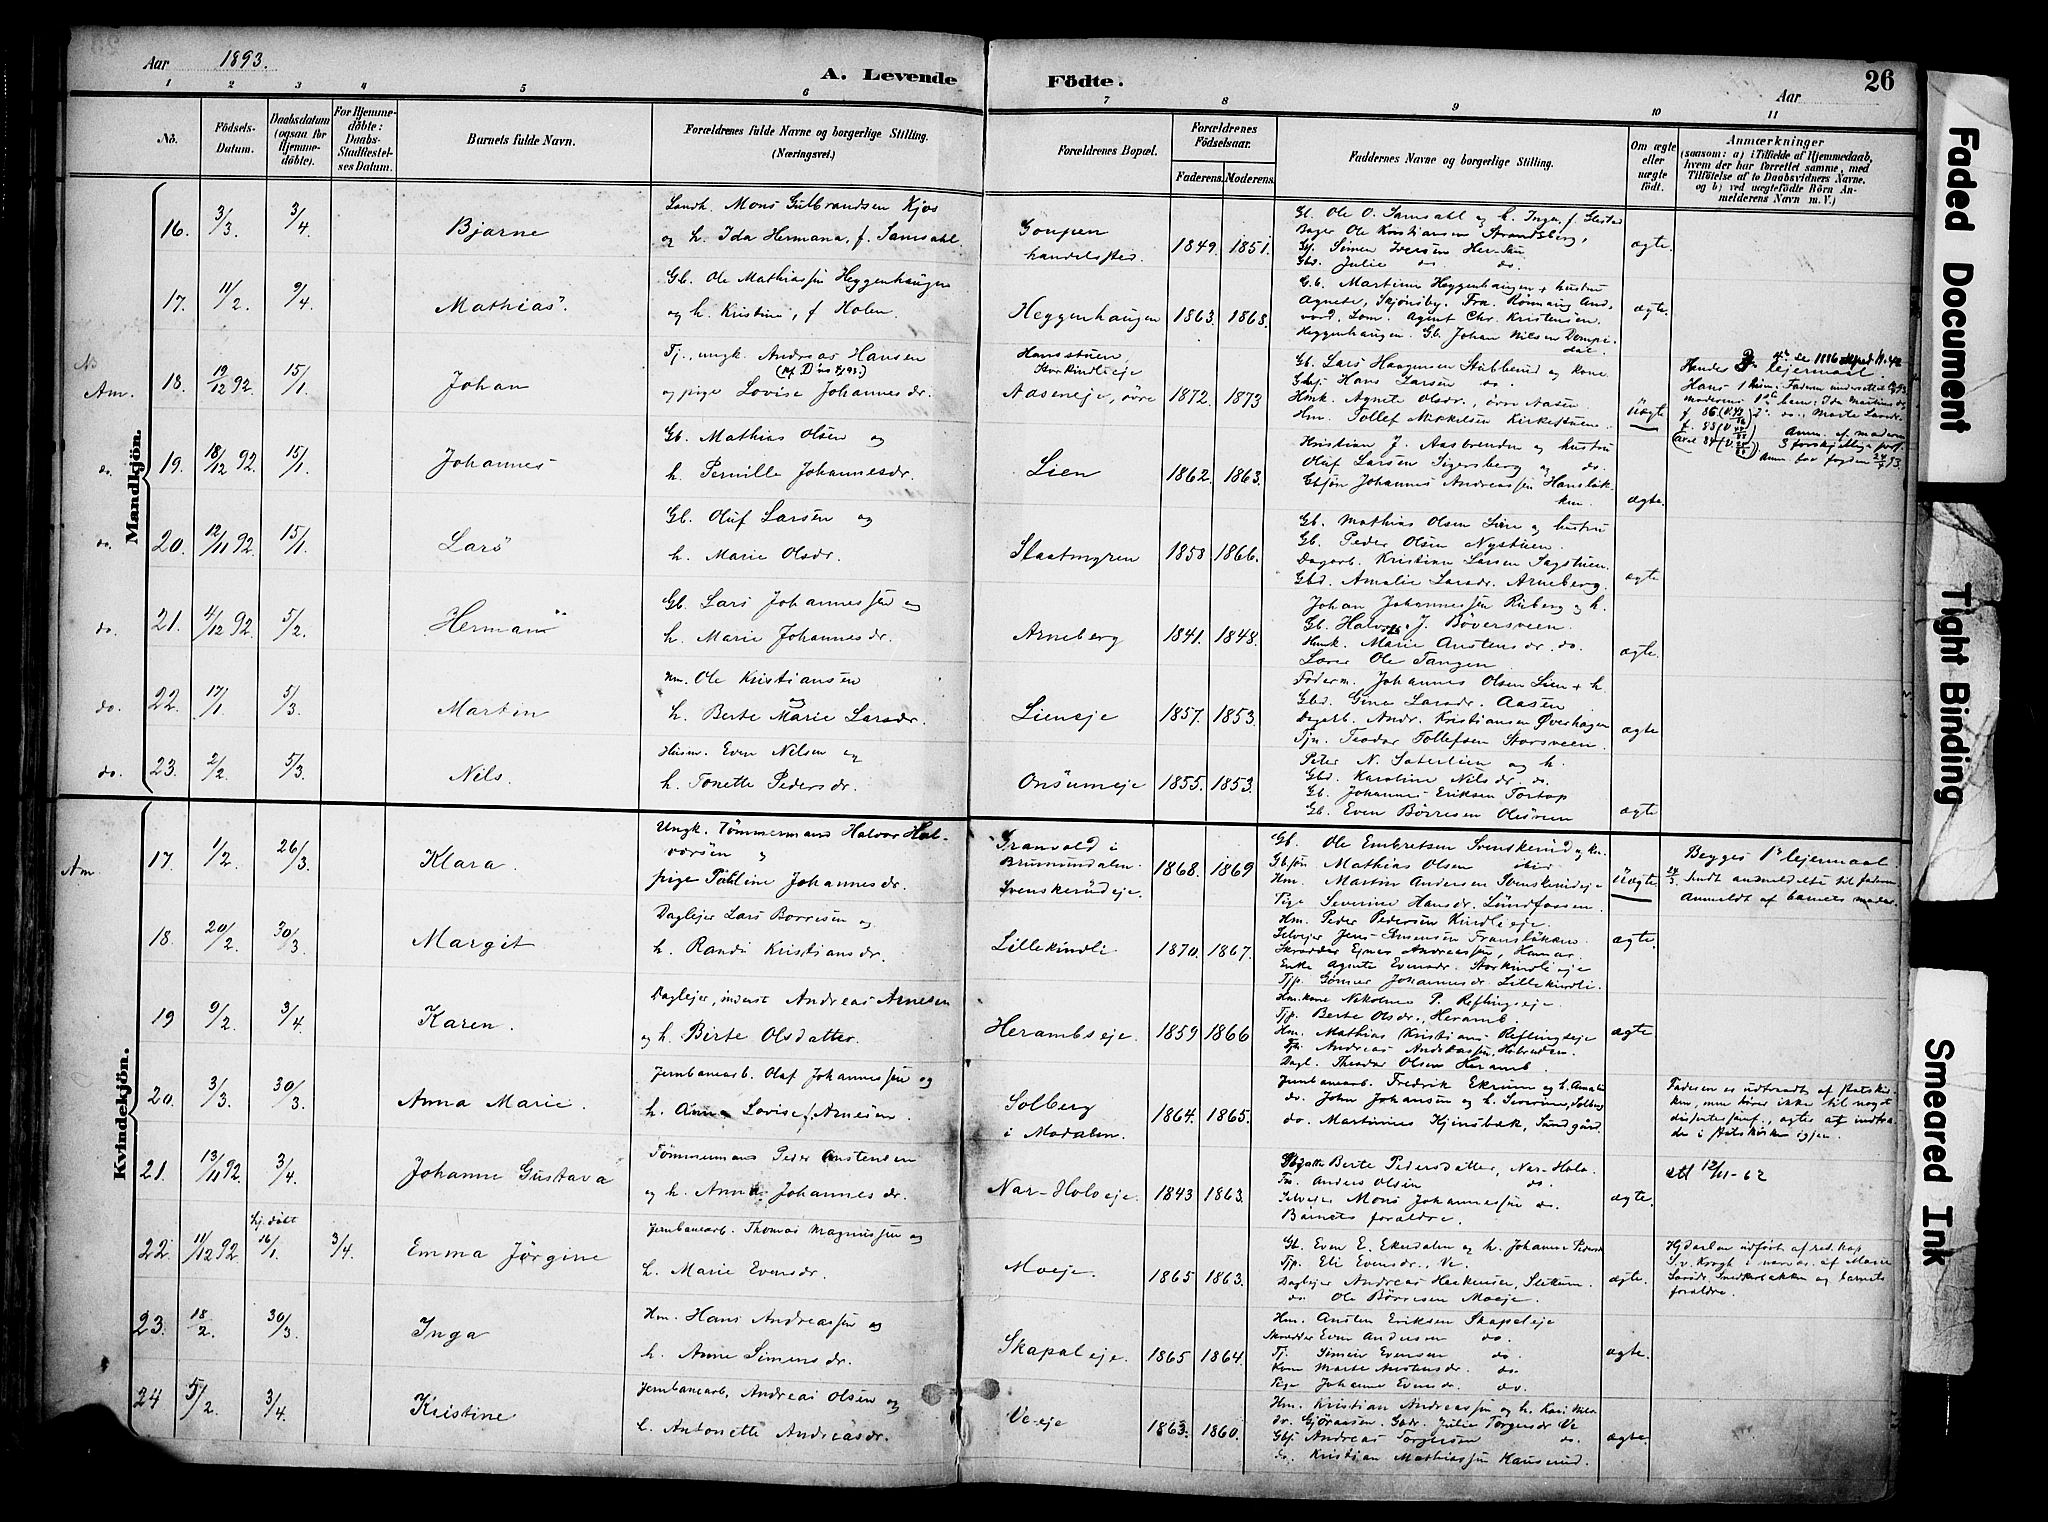 Aar 1893.
A. Levende Födte.
Aar
26
1 2 3 4 5 6 7 8 9 10 11
No.
Födsels-Datum.
Daabsdatum (ogsaa for Hjemmedöbte).
For Hjemmedöbte: Daabs-Stadfæstelses Datum.
Barnets fulde Navn.
Forældrenes fulde Navne og borgerlige Stilling. (Næringsvei.)
Forældrenes Bopæl.
Forældrenes Födselsaar.
Faderens. Moderens.
Faddernes Navne og borgerlige Stilling.
Om ægte eller uægte födt.
Anmærkninger
(saasom: a) i Tilfælde af Hjemmedaab,
hvem der har forrettet samme, med
Tilföielse af to Daabsvidners Navne,
og b) ved uægtefödte Börn Anmelderens Navn m. V.)
Mandkjön.
16. 3/3. 3/4. Bjarne
Landh. Mons Gulbrandsen Kjos
og h. Ida Hermana, f. Samsahl.
handelssted. 1849. 1851.
Gb. Ole O. Samsahl og h. Inga, f.
Bager Ole Kristiansen Strandsberg,
Gbd. Julie do do.
ægte.
17. 11/2. 9/4. Mathias
Gb. Ole Mathiassen Heggenhaugen
og h. Kristine, f Holen.
Heggenhaugen 1863. 1868.
Gb. Martinus Heggenhaugen + hustru
Agnete, Skjönsby.
Agent Chr. Kristensen
Heggenhaugen. Gb. Johan Nilsen
ægte.
Am. 18. 19/12 92. 15/1. Johan
Tj., ungk. Andreas Hansen
og pige Lovise Johannesdr.
Hansstuen,
Storkindlieje
Aaseneje, övre 1872. 1873
Gb. Lars Haagensen Stubberud og kone
Gbsj. Hans Larsen do.
Hmk. Agnete Olsdr., övre Aasen
Hm. Tollef Mikkelsen Kirkestuen.
Uægte
Hendes lejermaal
do. 19. 18/12 92. 15/1. Johannes
Gb. Mathias Olsen og
h. Pernille Johannesdr.
Lien 1862. 1863.
Kristian J. Aasbrenden og hustru
Oluf Larsen Sigersberg og do.
Gbsön Johannes Andreassen
ægte.
do. 20. 12/11 92. 15/1. Lars
Gb. Oluf Larsen og
h. Marie Olsdr.
Slaatmyren 1858 1866.
Gb. Mathias Olsen Lien og hustru
Gb. Peder Olsen Nystuen.
Dagarb. Kristian Larsen Sagstuen.
Gbd. Amalie Larsdr. Arneberg.
ægte
do. 21. 4/12 92. 5/2. Herman
Gb. Lars Johannessen og
h. Marie Johannesdr.
Arneberg 1841. 1848.
Johan Johannessen Röberg og h.
Gb. Halvor J. Böversveen.
Hmk. Marie Austensdr. do.
Lærer Ole Tangen
ægte.
do. 22. 17/1. 5/3. Martin
Hm. Ole Kristiansen
h. Berte Marie Larsdr.
Lieneje 1857. 1853.
Föderm. Johannes Olsen Lien + h.
Gbd. Gina Larsdr. Aasen
Dagarb. Andr. Kristiansen Överhagen
Tjn. Teodor Tollefsen Storsveen.
ægte
do. 23. 2/2. 5/3. Nils.
Husm. Even Nilsen og
h. Tonette Pedersdr.
Onsumeje 1855. 1853.
Peter N. Säterlien og h.
Gbd. Karoline Nilsdr. do.
Gb. Johannes Eriksen Tortop
Gb. Even Börresen Olesveen
ægte
Kvindekjön.
Am. 17. 1/2. 26/3. Klara.
Ungk. Tömmermand Halvor Halvorsen og
pige Pauline Johannesdr.
Granvold i
Brumunddalen.
Svenskerudeje. 1868. 1869
Gb. Ole Embretsen Svenskerud og kn.
Gbsön Mathias Olsen ibid
Hm. Martin Andersen Svenskerudeje
Pige Severine Hansdr. Lundfossen.
Uægte.
Begges 1ste lejermaal
Anmeldt af barnets moder.
18. 20/2. 30/3. Margit
Daglejer Lars Borresen og
h. Randi Kristiansdr.
Lillekindli 1870. 1867.
Hm. Peder Pedersen Kindlieje.
Selvejer Jens Jensen Fransbakken
Skrædder Andreassen, Hamar.
Enke Agnete Evensdr. Storkindlieje
Tjp. Gunner Johannesdr. Lillekindli.
ægte.
19 9/2. 3/4. Karen.
Daglejer, inderst Andreas Arnesen
og h. Berte Olsdatter.
Herambseje. 1859 1866
Hm.kone Nikoline P. Reflingseje.
Tjp. Berte Olsdr., Heramb.
Hm. Mathias Kristians. Reflingseje
Dagl. Theodor Olsen Heramb.
ægte
20. 3/3. 30/3. Anna Marie.
Jernbanearb. Olaf Johannessen og
h. Anna Lovise f. Arnesen.
Solberg
i Modalen. 1864. 1865.
Jernbanearb. Fredrik Ekrum og h. Amalie
do. John Johansen og h. Severine, Solberg
do. Martinius Kjinsbæk, Sundgård.
Faderen er udtraadt af Statskirken, men hörer ikke til noget
dissentersamf., agter at indtræde i Statskirken igjen.
21. 13/11 92. 3/4. Johanne Gustava
Tömmermand Peder Austensen
og h. Anna Johannesdr.
Nar-Holveje. 1843 1863.
Berte Pedersdatter, Nar-Holv.
Anders Olsen do.
Selvejer Mons Johannessen do.
Barnets forældre.
ægte.
12/11-62
22. 11/12 92. hj. döbt 16/1. 3/4. Emma Jörgine
Jernbanearb. Thomas Magnussen og
h. Marie Evensdr.
Moeje. 1865 1863.
Gb. Even E. Ekerdalen og h. Johanne Pedersdr
Tjp. Eli Evensdr., Ve.
Daglejer Andreas Haakensen,
do. Ole Börresen Moeje.
ægte.
Hj.daaben udfört af res. kap.
S. v. Krogh i nærvær. af Marie
Larsdr. Smedbakken og barnets
forældre.
23. 18/2. 30/3. Inga
Hm. Hans Andreassen og
h. Anne Simensdr.
Skapaleje. 1865 1864.
Hm. Austen Eriksen Skapaleje
Skrædder Even Andersen do.
Tj. Simen Evensen do.
Kone Marte Austensdr. do.
Pige Johanne Evensdr. do.
ægte.
24 5/2. 3/4. Kristine
Jernbanearb. Andreas Olsen og
h. Antonette Andreasdr.
Veeje 1863. 1860.
Hm. Kristian Andreassen og h. Kari Nils
dr. Gjöraasen. Gadr. Julie Torgersdr Ve
Gbsj. Andreas Torgersen do.
do. Kristian Mathiassen Kauserud.
ægte.
Faded Document
Tight Binding
Smeared Ink